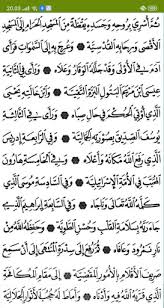 20.05
ثُمَّ أُسْرِيَ بِرُوحِهِ وَجَسَدِهِ يَقَظَةً مِنَ الْمَسْجِدِ الْحَرَامِ إِلَى الْمَسْجِدِ
الْأَقْصَى وَرِحَابِهِ الْقُدْسِيَّةِ ۞ وَعُرِجَ بِهِ إِلَى السَّمٰوَاتِ فَرَأَى
آدَمَ فِي الْأُولَى وَقَدْ جَلَّلَهُ الْوَقَارُ وَعَلَاهُ ۞ وَرَأَى فِي الثَّانِيَةِ
عِيسَى بْنَ مَرْيَمَ الْبَتُولِ الْبَرَّةِ التَّقِيَّةِ ۞ وَابْنَ خَالَتِهِ يَحْيَى
الَّذِي أُوتِيَ الْحُكْمَ فِي حَالِ صِبَاهُ ۞ وَرَأَى فِي الثَّالِثَةِ
يُوسُفَ الصِّدِّيقَ بِصُورَتِهِ الْجَمَالِيَّةِ ۞ وَفِي الرَّابِعَةِ إِدْرِيسَ
الَّذِي رَفَعَ اللهُ مَكَانَهُ وَأَعْلَاهُ ۞ وَفِي الْخَامِسَةِ هَارُونَ
الْمُحَبَّبَ فِي الْأُمَّةِ الْإِسْرَائِيلِيَّةِ ۞ وَفِي السَّادِسَةِ مُوسَى الَّذِي
كَلَّمَهُ اللهُ تَعَالَى وَنَاجَاهُ ۞ وَفِي السَّابِعَةِ إِبْرَاهِيمَ الَّذِي
جَاءَ رَبَّهُ بِسَلَامَةِ الْقَلْبِ وَحُسْنِ الطَّوِيَّةِ ۞ وَحَفِظَهُ مِنْ
نَارِ نَمْرُودَ وَعَافَاهُ ۞ ثُمَّ رُفِعَ إِلَى سِدْرَةِ الْمُنْتَهَى إِلَى أَنْ سَمِعَ
صَرِيفَ الْأَقْلَامِ بِالْأُمُورِ الْمَقْضِيَّةِ ۞ إِلَى مَقَامِ الْمُكَافَحَةِ